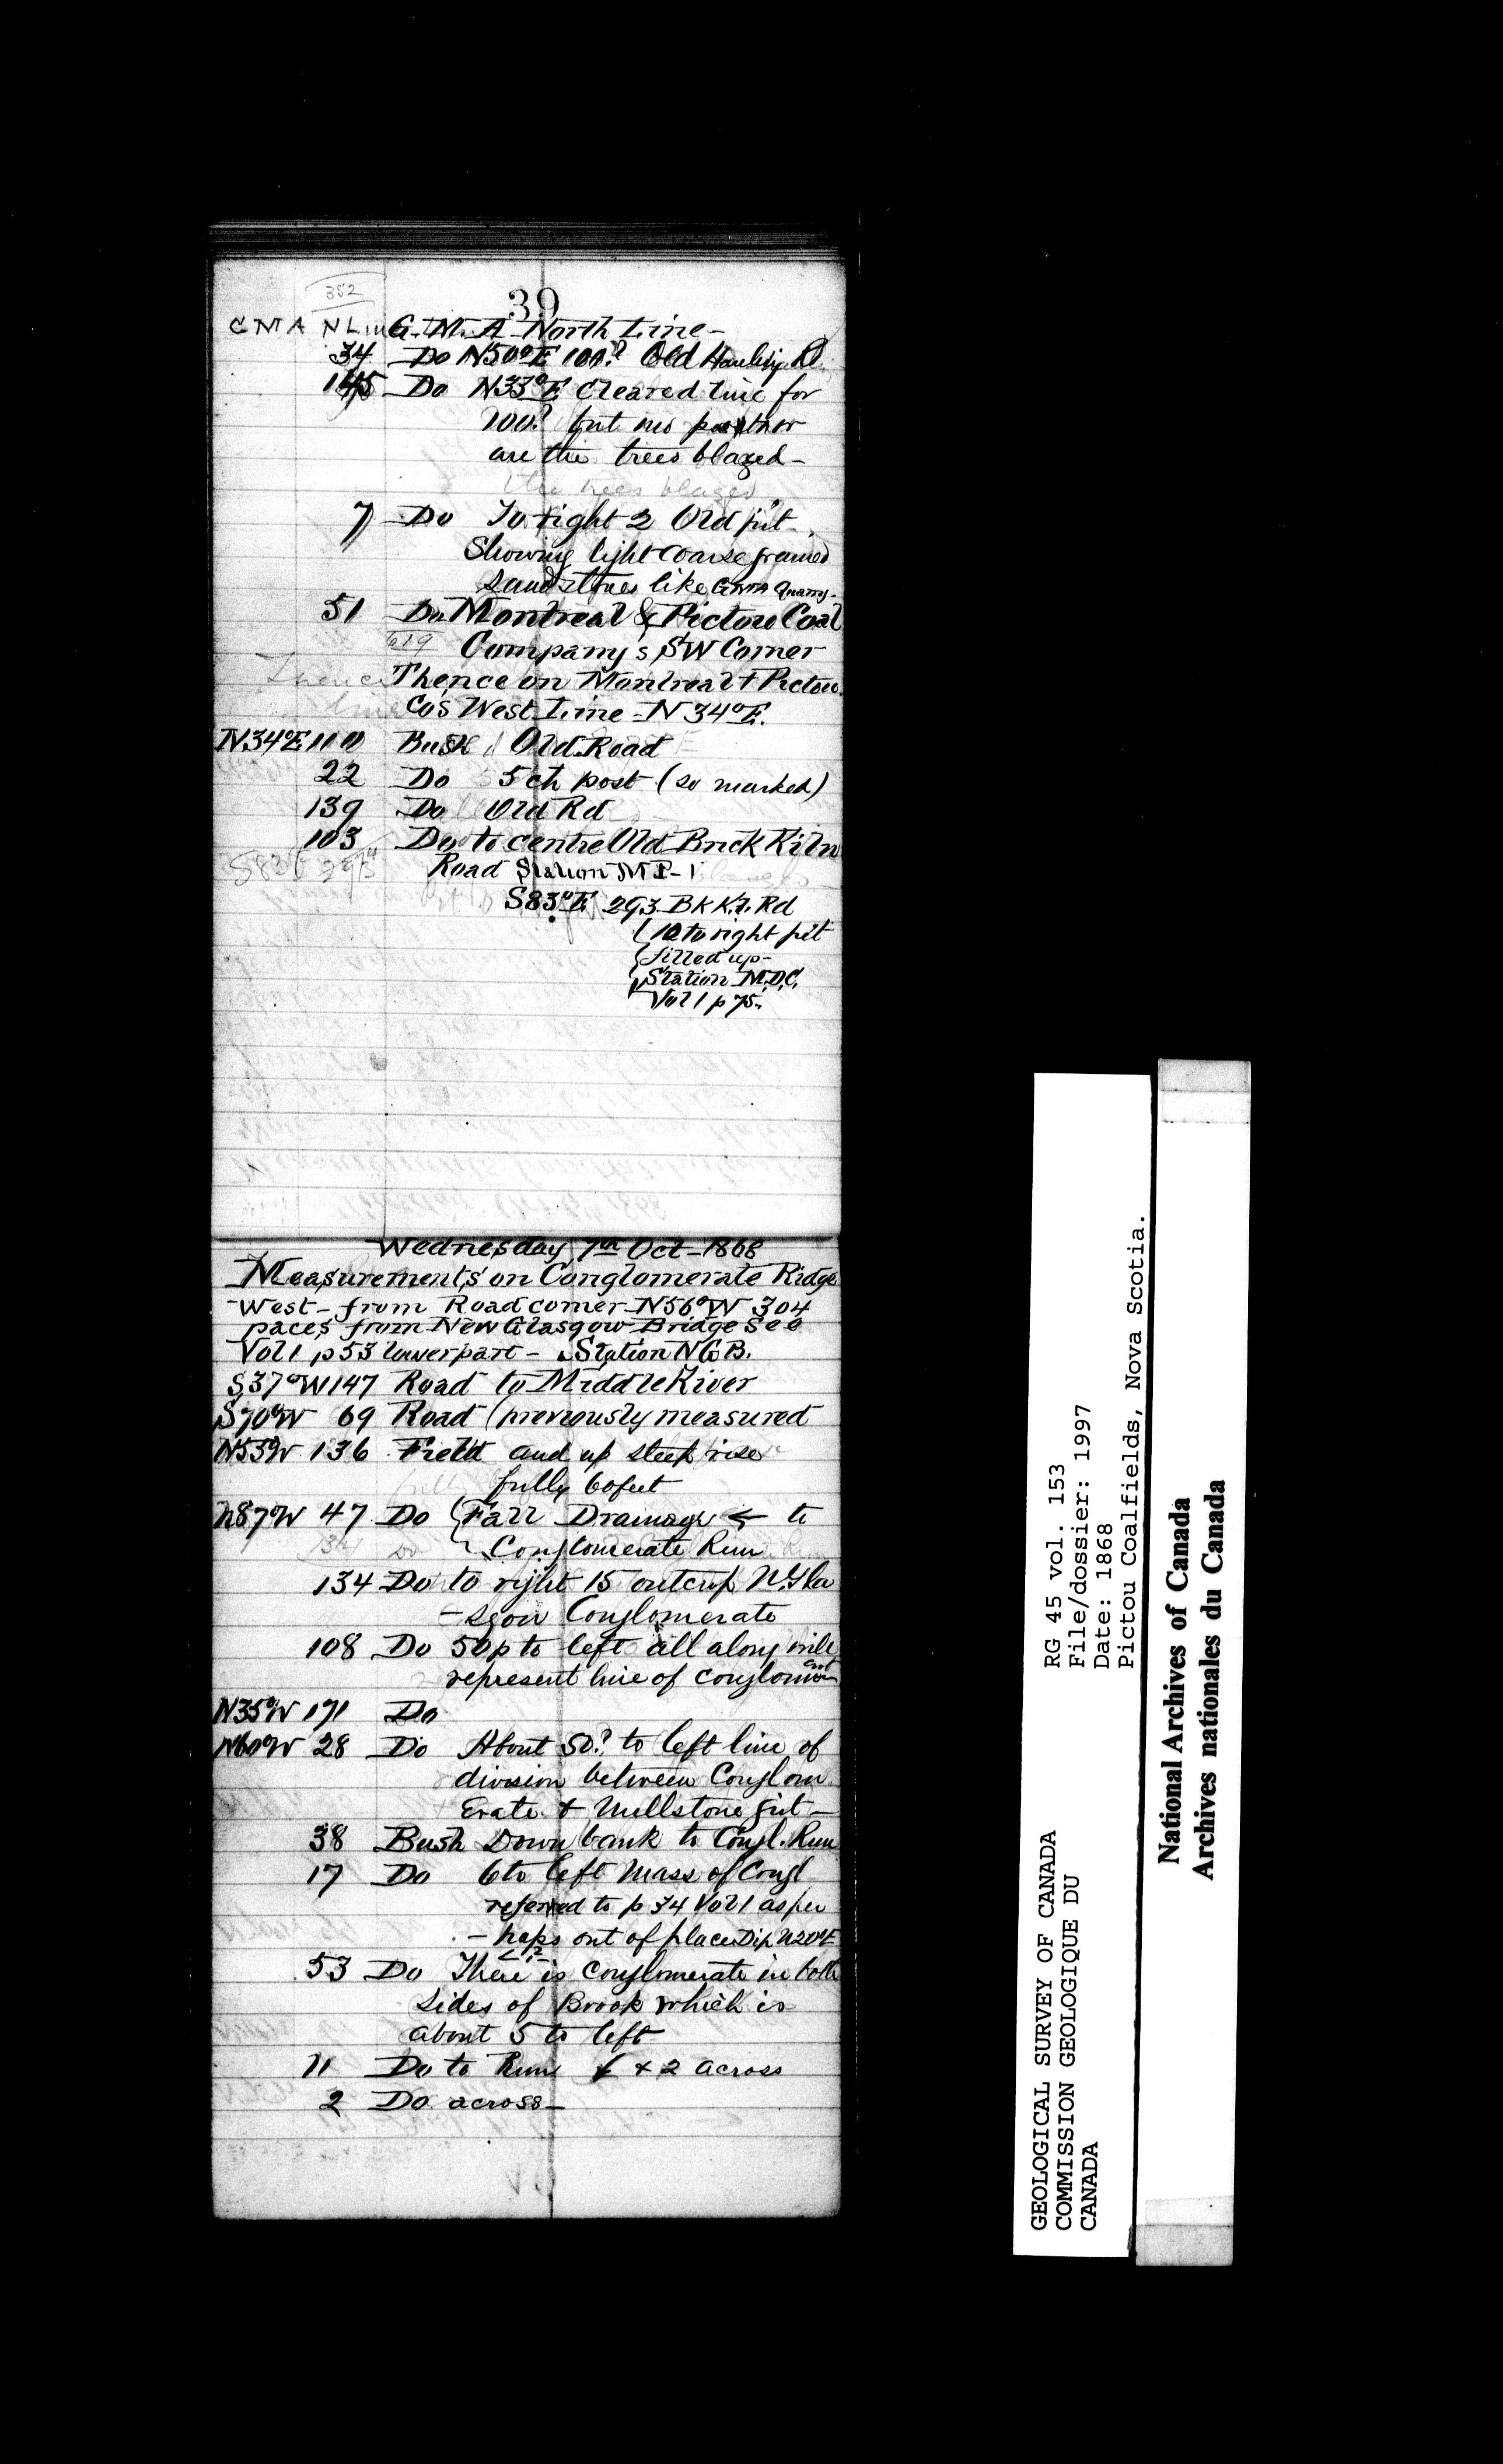 352
39
GMA N Line G.M.A North Line-
34 Do N50°E 100? Old Hauling Rd.
145 Do N33°E Cleared line for
100? but no post nor
are the trees blazed-
the trees blazed
7 Do To right 2 Old pit
Showing light coarse grained
sandstones like GMA Quarry-
51 Do Montreal & Pictou Coal
619 Company's SW Corner
Thence on Montreal & Pictou
Co's West Line - N34°E.
N34°E 110 Bush Old Road
22 Do 5 ch post (so marked)
139 Do Old Rd
103 Do to centre Old Brick Kiln
S83E 293 Road Station MP-1
S83°E 293 BK Kn Rd
10 to right pit
filled up-
Station M.D.C.
Vol 1 p 75.
Wednesday 7th Oct-1868
Measurements on Conglomerate Ridge
West- from Road corner N56°W 304
paces from New Glasgow Bridge See
Vol 1 p 53 lower part - Station NGB.
S37°W 147 Road to Middle River
S70°W 69 Road (previously measured
N53W 136 Field and up steep rise
fully 60 feet
N87°W 47 Do Fall Drainage ← to
134 Do Conglomerate Run
134 Do to right 15 outcrop N.Gla
-sgow Conglomerate
108 Do 50p to left all along will
represent line of conglom
N35°W 171 Do
N60°W 28 Do About 50? to left line of
division between Conglom
erate & Millstone grit-
38 Bush Down bank to Congl. Run
17 Do 6 to left Mass of Congl
referred to p 34 Vol 1 as per
-haps out of place Dip N20°E
53 Do There is conglomerate in both
sides of Brook which is
about 5 to left
11 Do to Run & 2 across
2 Do across-
GEOLOGICAL SURVEY OF CANADA
COMMISSION GEOLOGIQUE DU
CANADA
RG 45 vol. 153
File/dossier: 1997
Date: 1868
Pictou Coalfields, Nova Scotia.
National Archives of Canada
Archives nationales du Canada